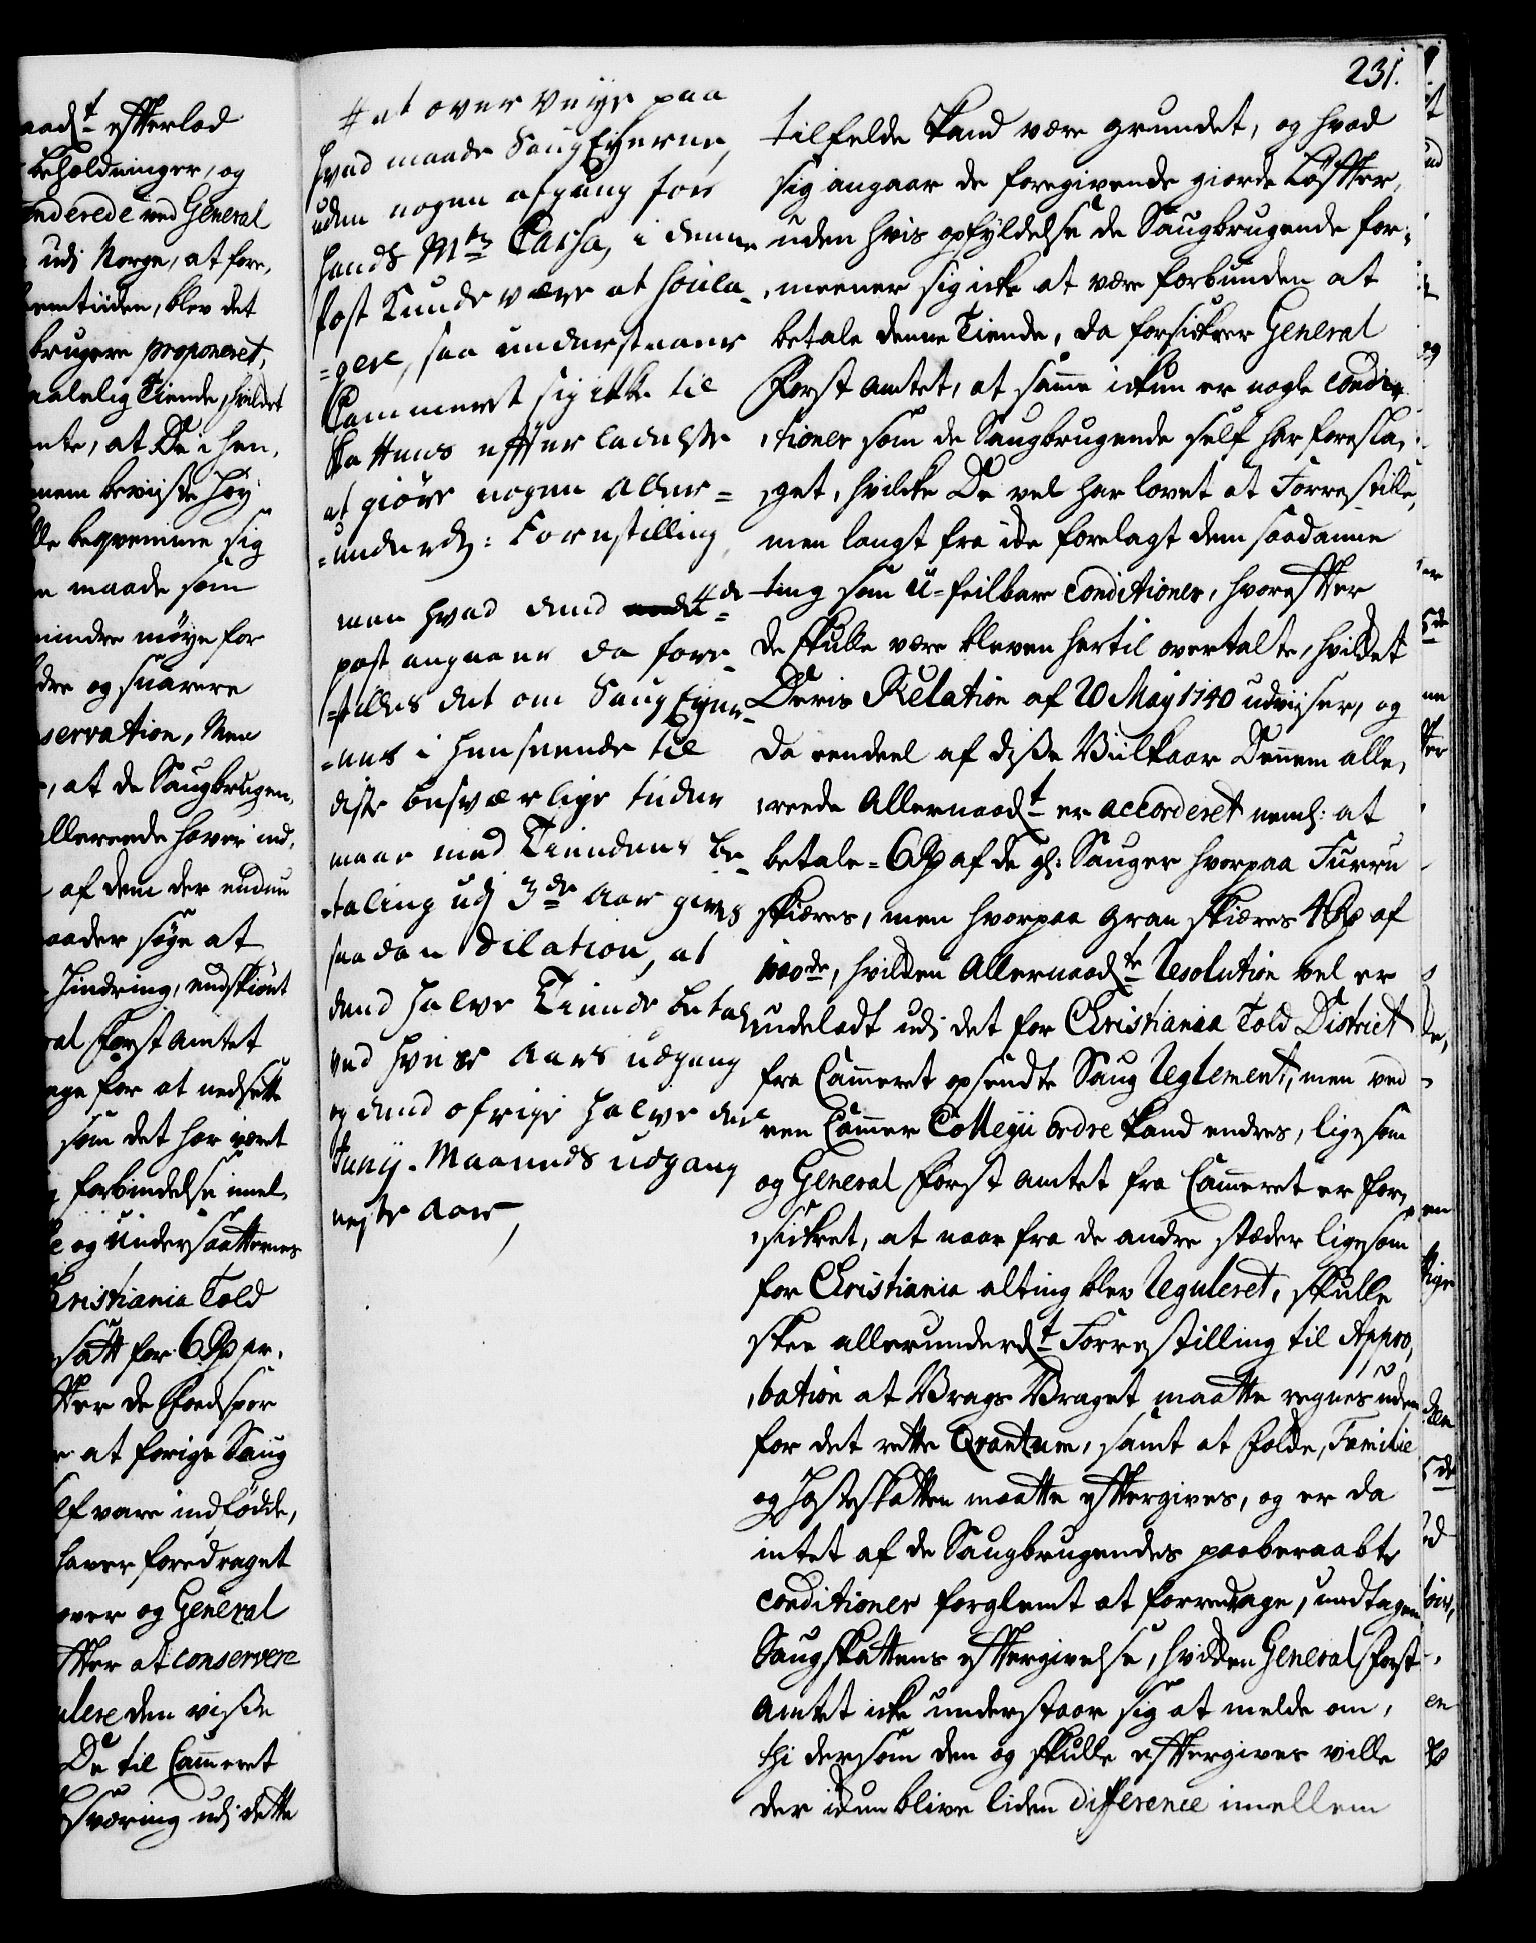 231.
aadt efterlod
beholdninger, og
nderede ved General
udj Norge, at fore,
emtiiden, blev det
brugere proponeret,
aalelig Tiende, hvilket
nte, at De i hen,
nem beviiste Høy
lle beqvemme sig
maade som
mindre møye for
dre og svarere
servation, Men
, at de Saugbrugen,
llereede haver ind,
af dem der endnu
aader søge at
Hindring, endskiønt
al Forst Amtet
age for at nedsætte
som det har været
forbindelse imel,
og Undersaatternes
hristiania Told
satt for 6 Rd pr.
ter de Fredspor
at forige Saug
lf vare indfødde,
haver foredraget
over og General
fter at conservere
ulere den visse
De til Cammeret
sværing udj dette
# at overveye paa
hvad maade SaugEyerne,
uden nogen afgang for
Hands Mts Cassa, i denne
Post Kunde være at soula-
=gere, saa understaaer
Cammeret sig ikke til
Skattens efterladelse
at giøre nogen aller=
=underd: Forestilling,
men hvad dend 4de
post angaaer da fore-
=stilles det om SaugEyer-
=nes i henseende til
disse besværlige tider
maae med Tiendens be-
-taling udj 3de Aar gives
saadan Dilation, at
dend halve Tiende betales
ved hver Aars udgang
og dend øfrige halve del
Junij Maaneds udgang
neste Aar,
tilfelde kand være grundet, og hvad
sig angaar de foregivende giorde Løfter,
uden hvis opfyldelse de Saugbrugende for,
,meener sig icke at være forbunden at
betale denne Tiende, da forsickrer General
Forst Amtet, at samme ickun er nogle Condi,
,tioner som de Saugbrugende self har foresla,
,get, hvilcke De vel har lovet at Forrestille,
men langt fra icke forelagt dem saadanne
ting som U=feilbare Conditioner, hvorefter
de skulle være bleven hertil overtalte, hvilcket
Deris Relation af 20 May 1740 udviiser, og
da eendeel af disse Viilkaar Dennem alle,
,reede Allernaadt er accorderet neml: at
betale = 6 Rd af de gl: Sauger hvorpaa Furru
skiæres, men hvorpaa Gran skiæres 4 Rd af
100de, hvilcken Allernaadte Resolution vel er
udeladt udj det for Christiania Told District
fra Cammeret opsendte Saug Reglement, men ved
een Cammer Collegii ordre kand endres, ligesom
og General Forst Amtet fra Cammeret er for,
,sickret, at naar fra de andre stæder ligesom
for Christiania alting blev Reguleret, skulle
skee allerunderdt Forrestilling til Appro,
,bation at Vrags Vraget maatte regnes uden
for det rette Qvantum, samt at Folke, Familie
og Hesteskatten maatte eftergives, og er da
intet af de Saugbrugendes paaberaabte
Conditioner forglemt at forredrage, undtagen
Saugskattens eftergivelse, hvilcken General Forst
Amtet icke understaar sig at melde om,
thi dersom den og skulle eftergives ville
der ickun blive liden difference imellem